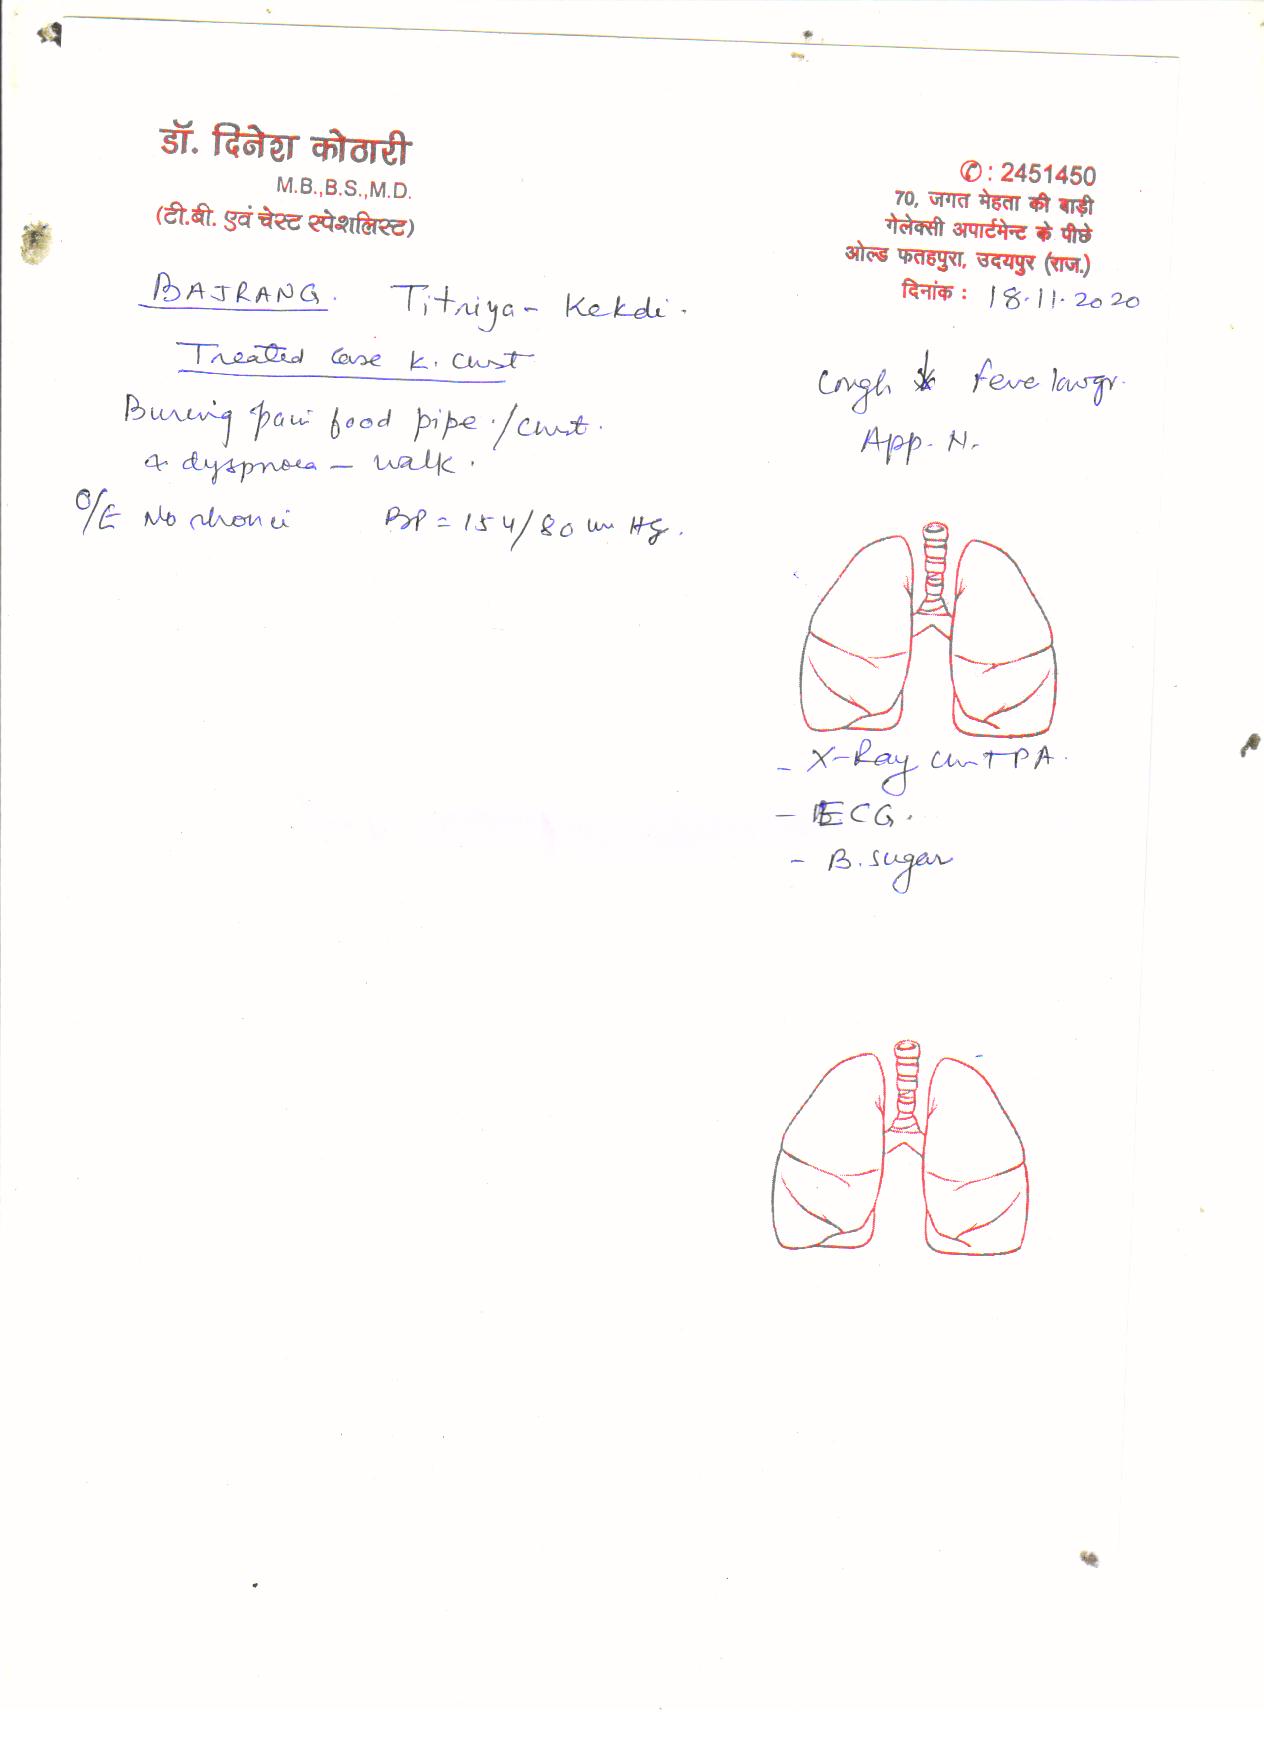 डॉ. दिनेश कोठारी
M.B.,B.S.,M.D.
(टी.बी. एवं चेस्ट स्पेशलिस्ट)
✆ : 2451450
70, जगत मेहता की बाड़ी
गेलेक्सी अपार्टमेन्ट के पीछे
ओल्ड फतहपुरा, उदयपुर (राज.)
दिनांक : 18.11.2020
BAJRANG. Titriya - Kekdi.
Treated Case K. Chest
Burning pain food pipe./chest.
+ dyspnoea - walk.
O/E No rhonci BP = 154/80 mm Hg.
Cough Feve lowgr.
App. N.
- X-Ray Chest PA.
- ECG.
- B. sugar